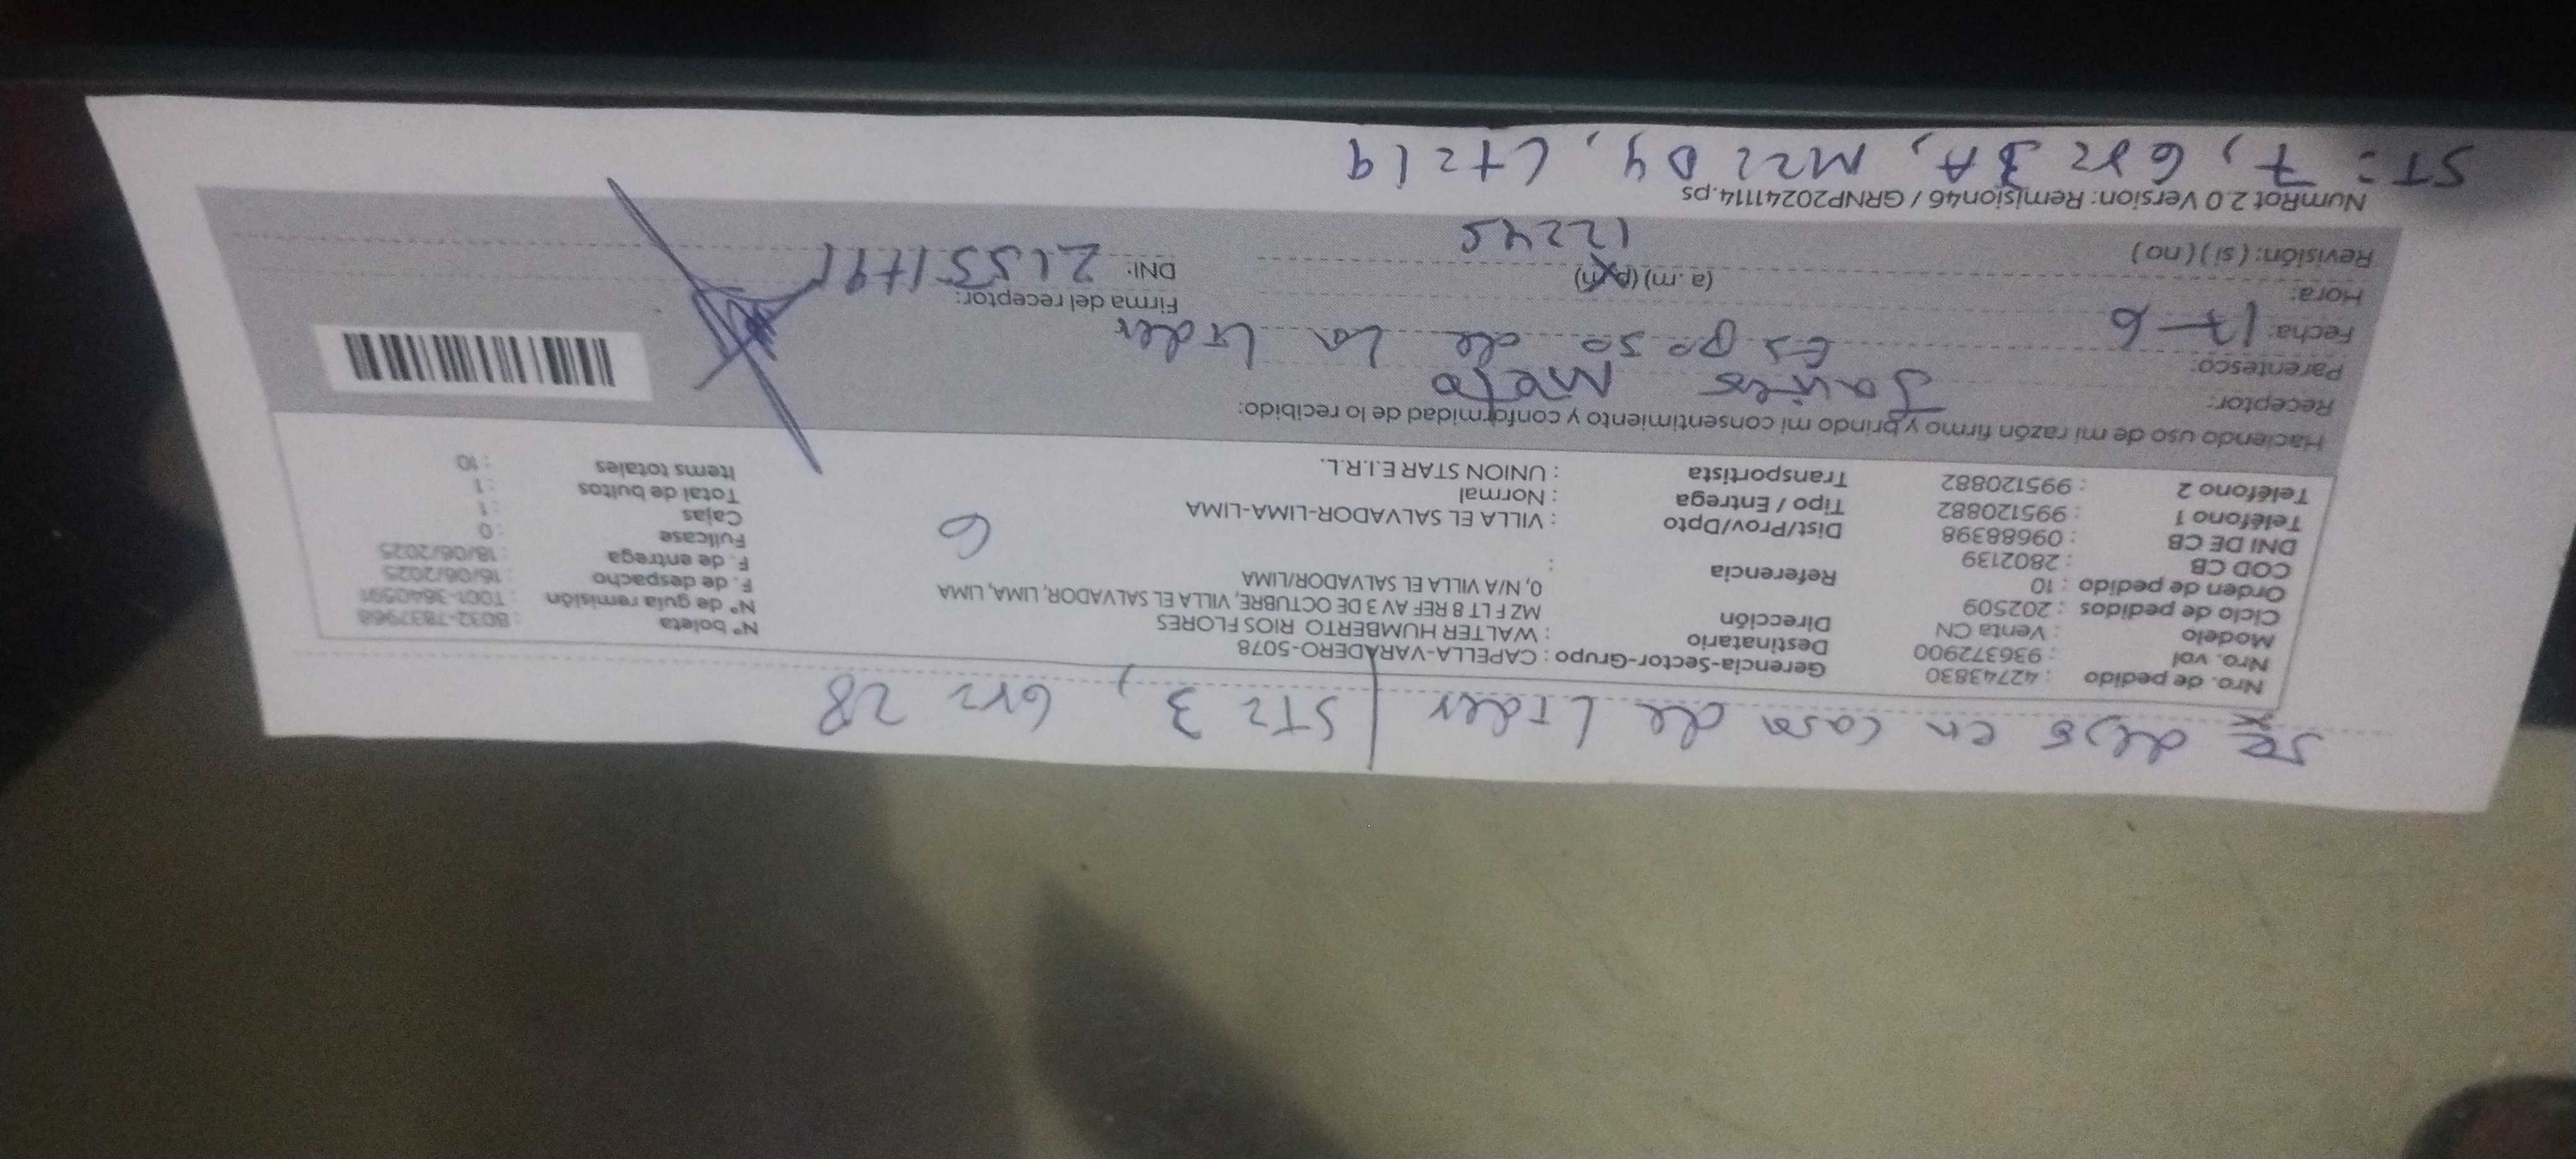 Se dejo en casa de Lider / ST= 3, Gr= 28
Nro. de pedido : 42743830
Nro. vol : 936372900
Modelo : Venta CN
Ciclo de pedidos : 202509
Orden de pedido : 10
COD CB : 2802139
DNI DE CB : 09688398
Teléfono 1 : 995120882
Teléfono 2 : 995120882
Gerencia-Sector-Grupo : CAPELLA-VARADERO-5078
Destinatario : WALTER HUMBERTO RIOS FLORES
Dirección MZ F LT 8 REF AV 3 DE OCTUBRE, VILLA EL SALVADOR, LIMA, LIMA
0, N/A VILLA EL SALVADOR/LIMA
Referencia :
Dist/Prov/Dpto : VILLA EL SALVADOR-LIMA-LIMA
Tipo / Entrega : Normal
Transportista : UNION STAR E.I.R.L.
6
N° boleta : B032-7837968
N° de guía remisión : T001-3640591
F. de despacho : 16/06/2025
F. de entrega : 18/06/2025
Fullcase : 0
Cajas : 1
Total de bultos : 1
Items totales : 10
Haciendo uso de mi razón firmo y brindo mi consentimiento y conformidad de lo recibido:
Receptor: Javier
Parentesco: Esposo de La Lider
Fecha: 17-6
Hora: (a.m) (p.m)
Revisión: (si) (no)
Firma del receptor:
DNI:
NumRot 2.0 Version: Remision46 / GRNP20241114.ps
ST= 7, Gr= 3A, Mz= Dy, Lt= 19